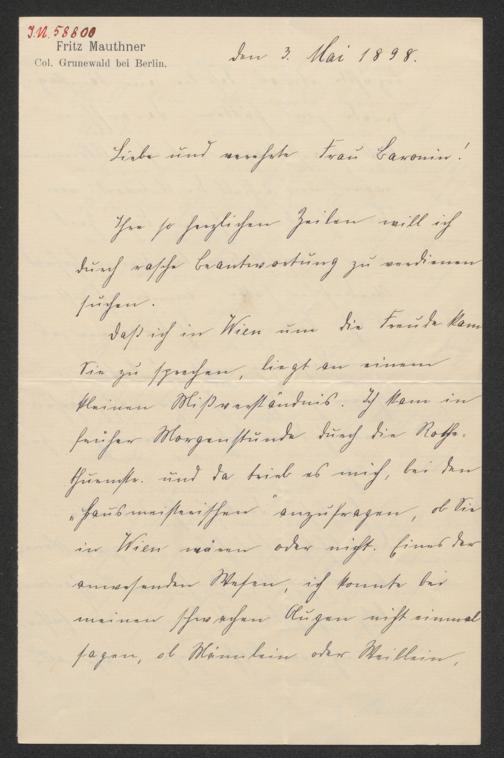 I.N. 58800
Fritz Mauthner
Col. Grunewald bei Berlin.
den 3. Mai 1898.
Liebe und verehrte Frau Baronin!
Ihre so herzlichen Zeilen will ich
durch rasche Beantwortung zu verdienen
suchen.
Daß ich in Wien um die Freude kam
Sie zu sprechen, liegt an einem
kleinen Mißverständnis. Ich kam in
früher Morgenstunde durch die Rothe-
thurmstr. und da trieb es mich, bei den
„Hausmeisterischen" anzufragen, ob Sie
in Wien wären oder nicht. Eines der
anwesenden Wesen, ich konnte bei
meinen schwachen Augen nicht einmal
sagen, ob Männlein oder Weiblein,